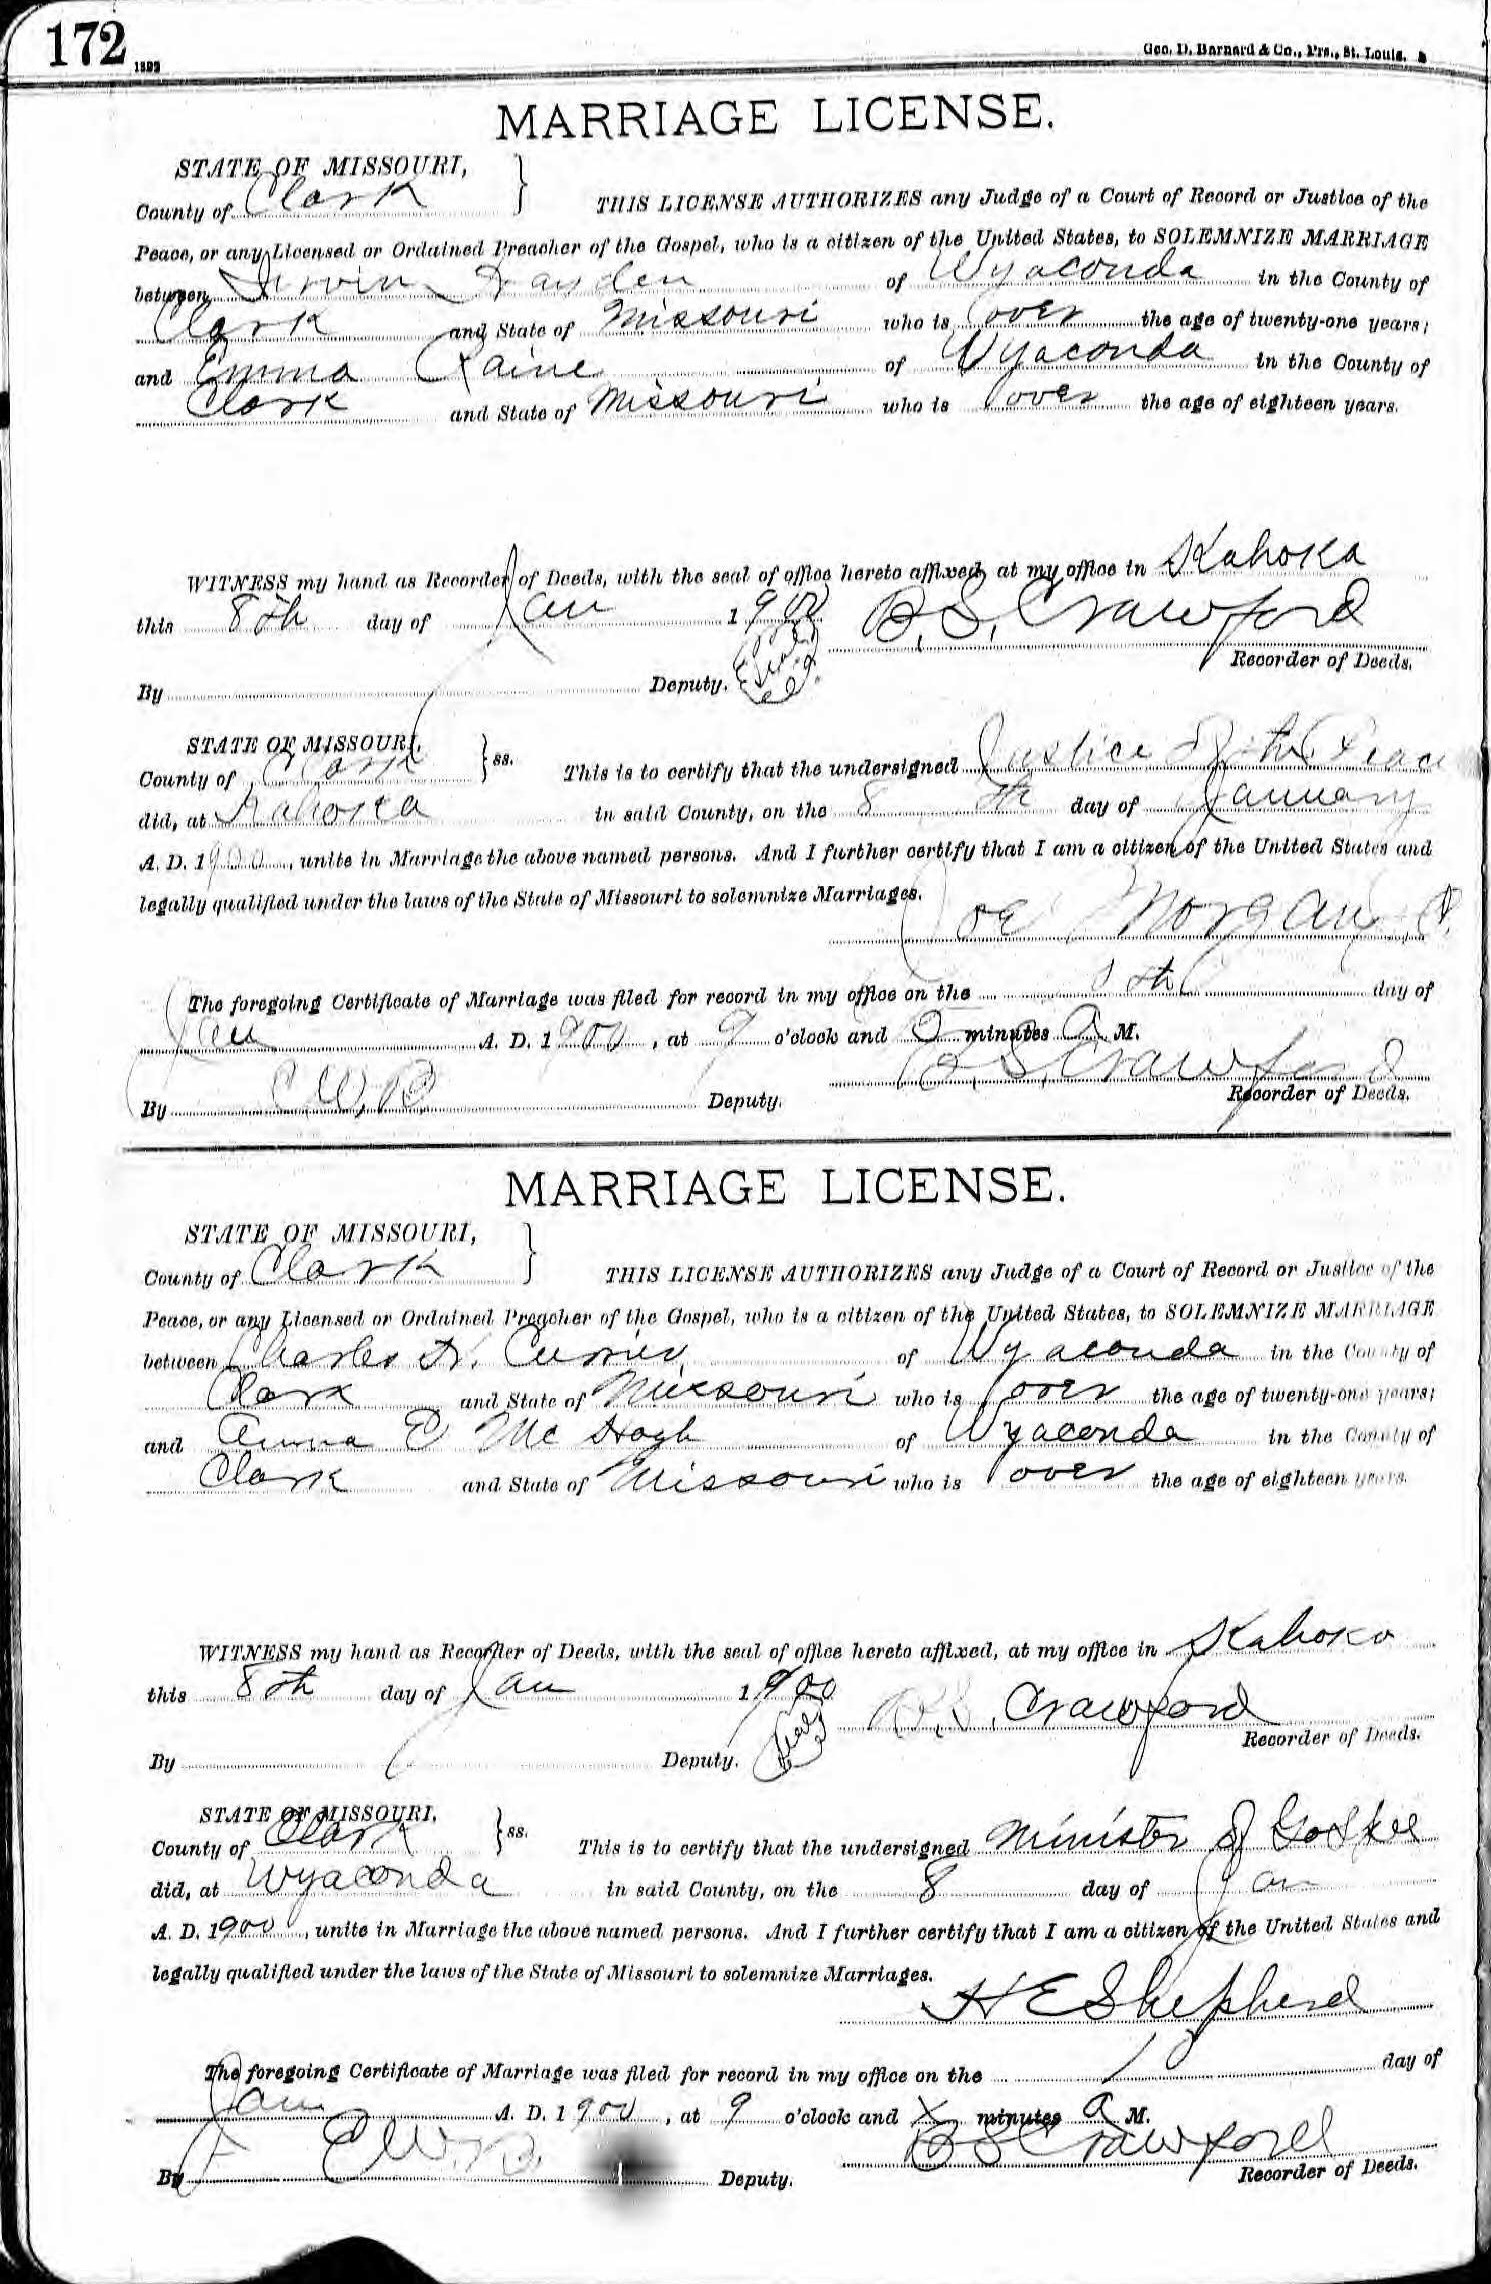 172
1892
Geo. D. Barnard & Co., Prs., St. Louis.
MARRIAGE LICENSE.
STATE OF MISSOURI,
County of Clark
THIS LICENSE AUTHORIZES any Judge of a Court of Record or Justice of the
Peace, or any Licensed or Ordained Preacher of the Gospel, who is a citizen of the United States, to SOLEMNIZE MARRIAGE
between Irvin Hayden of Wyaconda in the County of
Clark and State of Missouri who is over the age of twenty-one years;
and Emma Raine of Wyaconda in the County of
Clark and State of Missouri who is over the age of eighteen years.
WITNESS my hand as Recorder of Deeds, with the seal of office hereto affixed, at my office in Kahoka
this 8th day of Jan 1900 B. S. Crawford
(Seal) Recorder of Deeds.
By Deputy.
STATE OF MISSOURI,
County of Clark ss. This is to certify that the undersigned Justice of the Peace
did, at Kahoka in said County, on the 8th day of January
A. D. 1900, unite in Marriage the above named persons. And I further certify that I am a citizen of the United States and
legally qualified under the laws of the State of Missouri to solemnize Marriages.
Joe Morgan
The foregoing Certificate of Marriage was filed for record in my office on the day of
Jan A. D. 1900, at 9 o'clock and minutes A M.
B. S. Crawford
By Deputy. Recorder of Deeds.
MARRIAGE LICENSE.
STATE OF MISSOURI,
County of Clark
THIS LICENSE AUTHORIZES any Judge of a Court of Record or Justice of the
Peace, or any Licensed or Ordained Preacher of the Gospel, who is a citizen of the United States, to SOLEMNIZE MARRIAGE
between Charles N. of Wyaconda in the County of
Clark and State of Missouri who is over the age of twenty-one years;
and Anna E Mc Hogh of Wyaconda in the County of
Clark and State of Missouri who is over the age of eighteen years.
WITNESS my hand as Recorder of Deeds, with the seal of office hereto affixed, at my office in Kahoka
this 8th day of Jan 1900 B. S. Crawford
(Seal) Recorder of Deeds.
By Deputy.
STATE OF MISSOURI,
County of Clark ss. This is to certify that the undersigned Minister of Gospel
did, at Wyaconda in said County, on the 8 day of Jan
A. D. 1900, unite in Marriage the above named persons. And I further certify that I am a citizen of the United States and
legally qualified under the laws of the State of Missouri to solemnize Marriages.
H E Shepherd
The foregoing Certificate of Marriage was filed for record in my office on the 10 day of
Jan A. D. 1900, at 9 o'clock and X minutes A M.
B S Crawford
By Deputy. Recorder of Deeds.